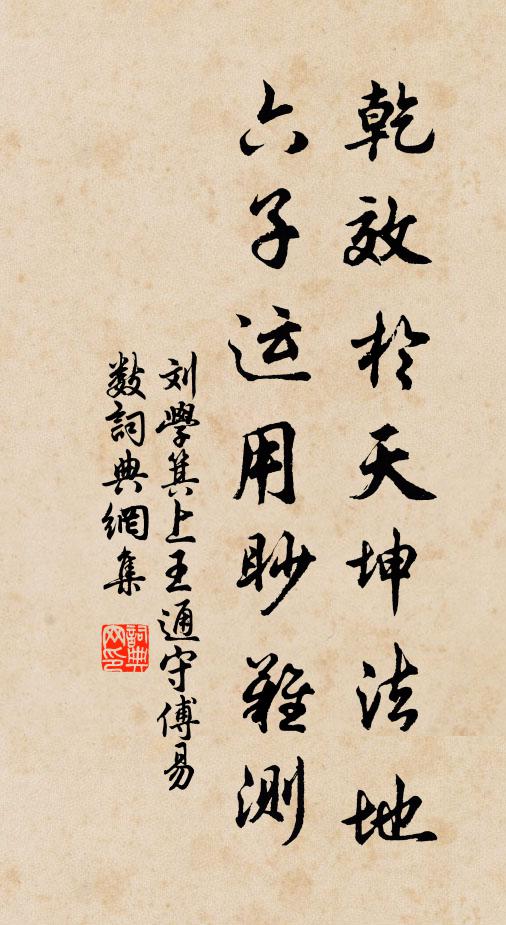 乾效於天坤法地
六子运用眇难測
刘學箕上王通守傅易
数詞典網集
詞典网印